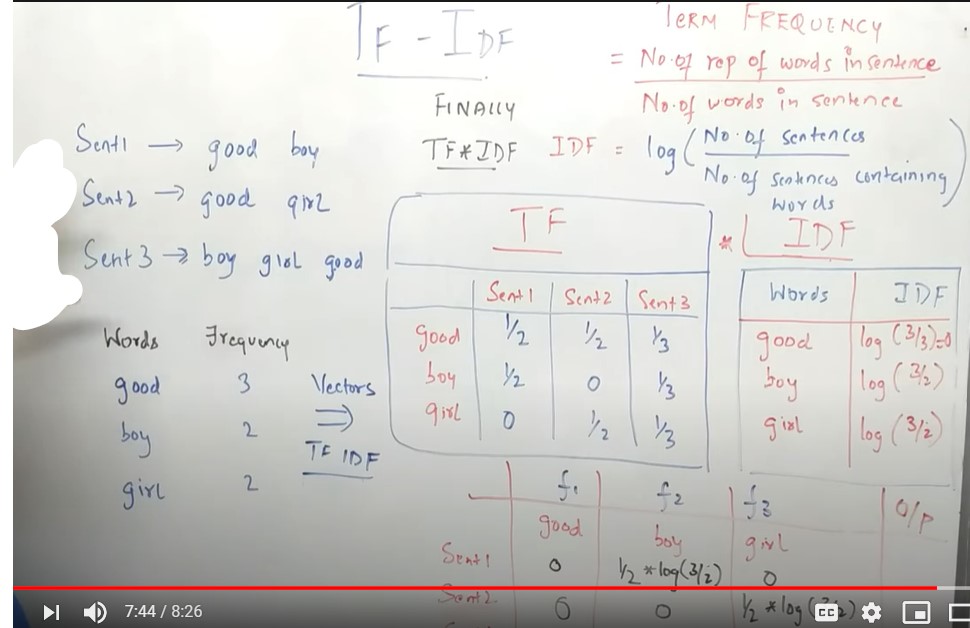 TF - IDF
TERM FREQUENCY
= No. of rep of words in sentence
No. of words in sentence
FINALLY
TF*IDF
IDF = log ( No. of sentences
No. of sentences containing
words )
Sent1 → good boy
Sent2 → good girl
Sent 3 → boy girl good
Words Frequency
good 3
boy 2
girl 2
Vectors
⇒
TF IDF
TF
* IDF
Sent1 Sent2 Sent3
good 1/2 1/2 1/3
boy 1/2 0 1/3
girl 0 1/2 1/3
Words IDF
good log (3/3)=0
boy log (3/2)
girl log (3/2)
f1 f2 f3 O/P
good boy girl
Sent1 0 1/2 * log(3/2) 0
Sent2 0 0 1/2 * log (3/2)
7:44 / 8:26
CC